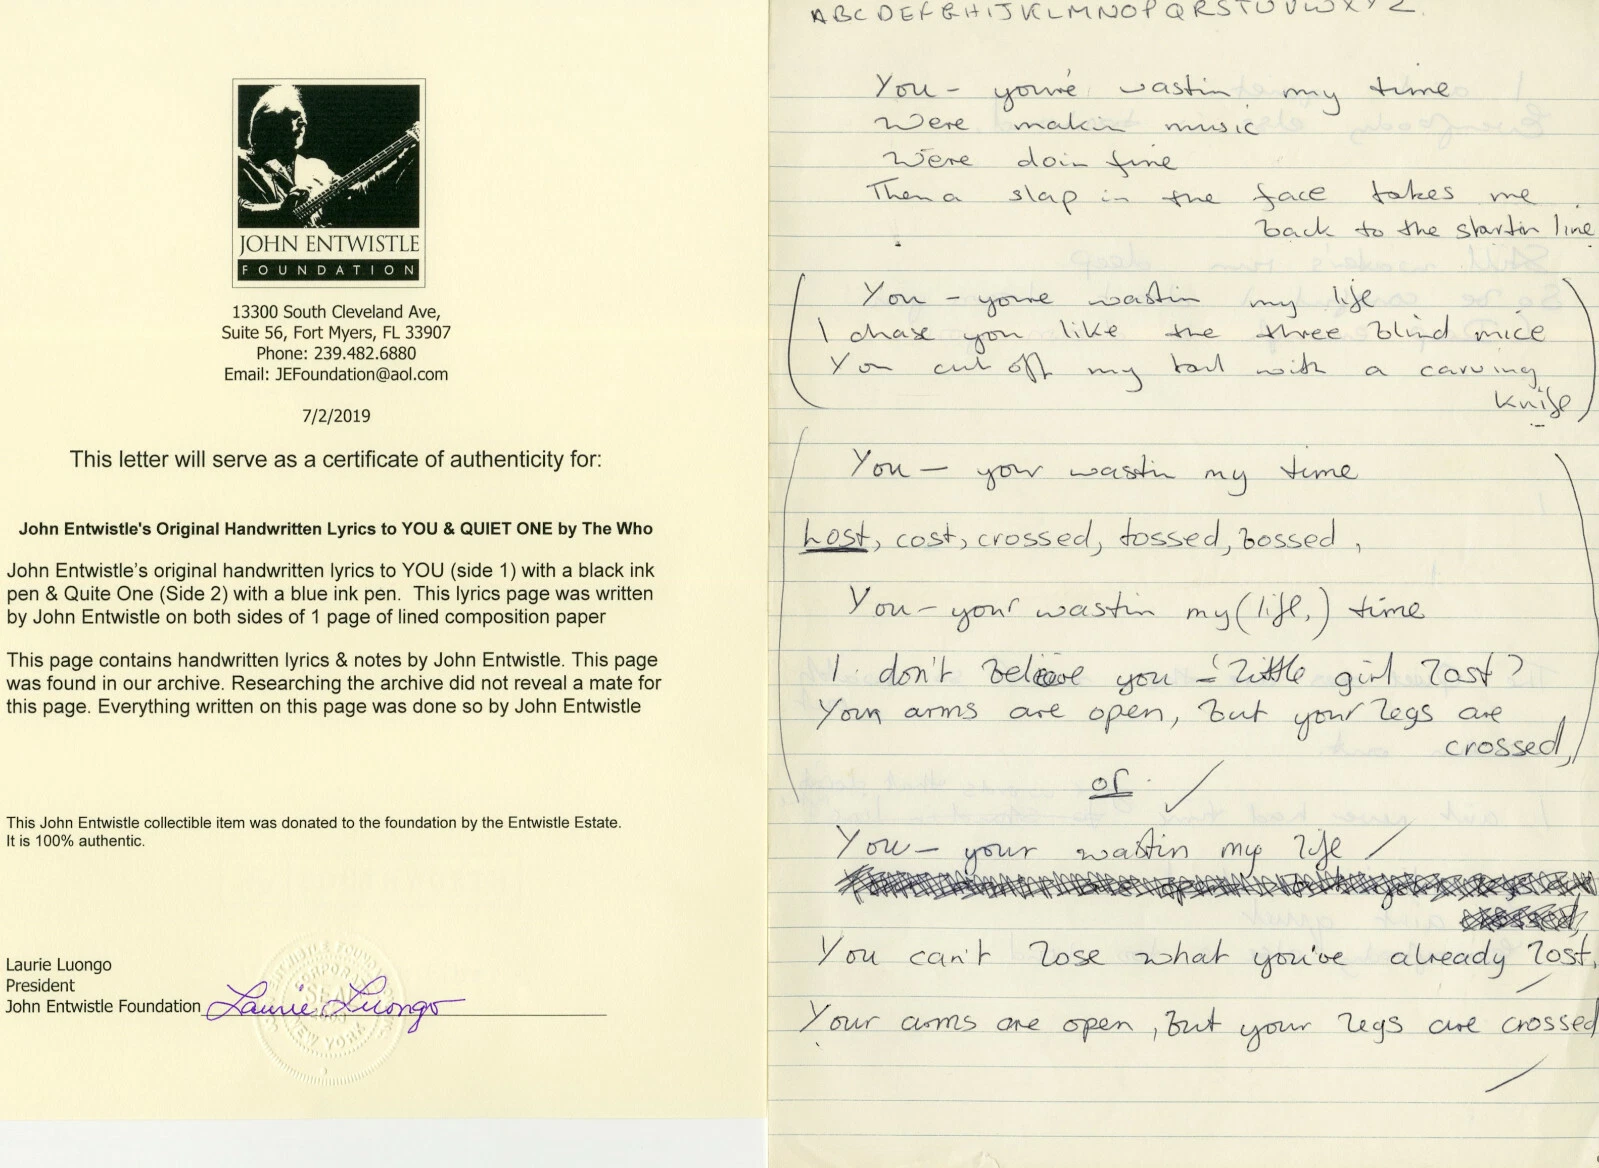 JOHN ENTWISTLE
FOUNDATION
13300 South Cleveland Ave,
Suite 56, Fort Myers, FL 33907
Phone: 239.482.6880
Email: JEFoundation@aol.com
7/2/2019
This letter will serve as a certificate of authenticity for:
John Entwistle's Original Handwritten Lyrics to YOU & QUIET ONE by The Who
John Entwistle's original handwritten lyrics to YOU (side 1) with a black ink
pen & Quite One (Side 2) with a blue ink pen. This lyrics page was written
by John Entwistle on both sides of 1 page of lined composition paper
This page contains handwritten lyrics & notes by John Entwistle. This page
was found in our archive. Researching the archive did not reveal a mate for
this page. Everything written on this page was done so by John Entwistle
This John Entwistle collectible item was donated to the foundation by the Entwistle Estate.
It is 100% authentic.
Laurie Luongo
President
John Entwistle Foundation Laurie Luongo
SEAL
NEW YORK
ABCDEFGHIJKLMNOPQRSTUVWXYZ.
You - you're wastin my time
Were makin music
We're doin fine
Then a slap in the face takes me
back to the startin line
(You - youre wastin my life
I chase you like the three blind mice
You cut off my tail with a carving
knife)
(You - your wastin my time
Lost, cost, crossed, tossed, bossed,
You - your wastin my (life,) time
I don't believe you - little girl lost?
Your arms are open, but your legs are
crossed,)
or
You - your wastin my life
You can't lose what you've already lost,
Your arms are open, but your legs are crossed